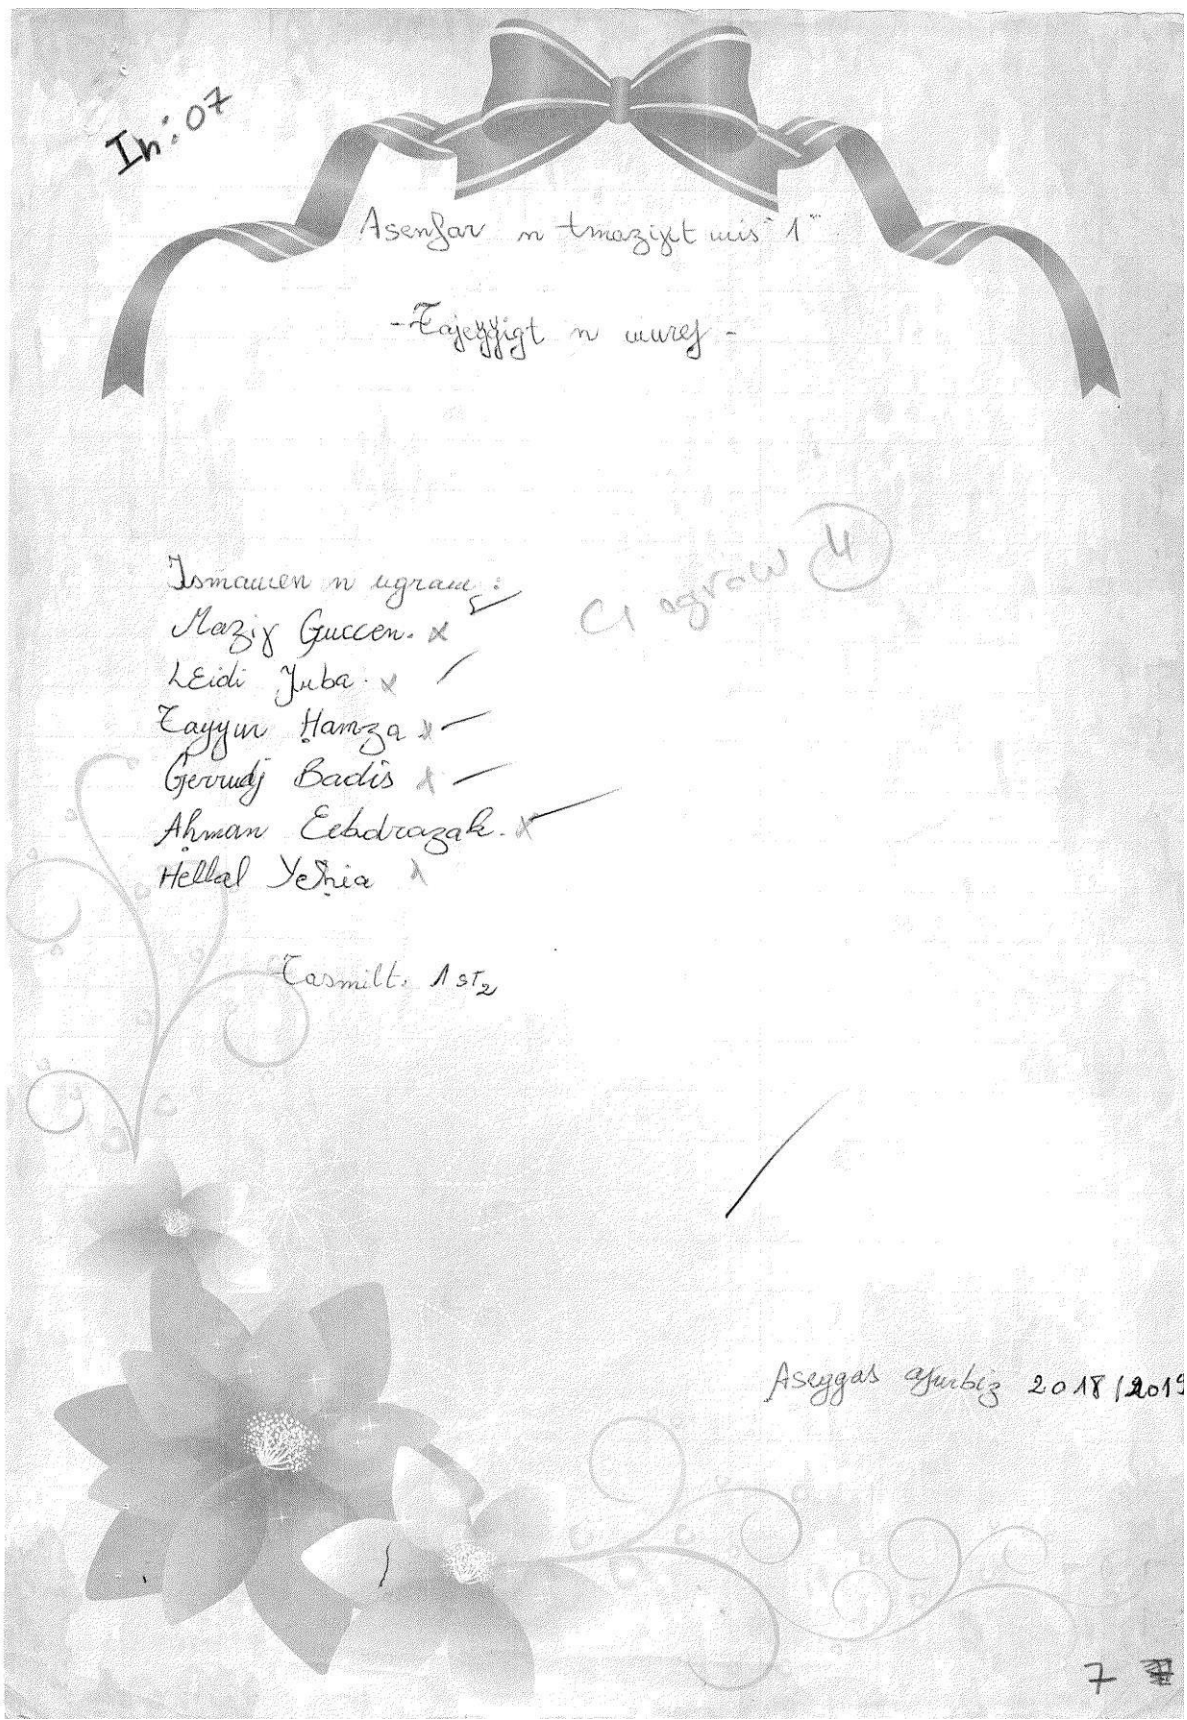 In: 07
Asenfar n tmaziɣt wis "1"
- Tajeǧǧigt n wureɣ -
C1 agraw 4
Ismawen n ugraw :
Maziɣ Guccen. x
LƐidi Juba. x
Tayyur Ḥamza x
Gerrudj Badis x
Aḥman Ɛebdrazak. x
Hellal Yeḥia x
Tasmilt. 1 ST2
Aseggas aɣurbiz 2018/2019
7